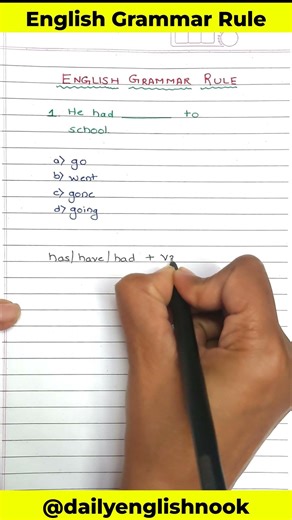 English Grammar Rule
ENGLISH GRAMMAR RULE
1. He had ______ to
school
a) go
b) went
c) gone
d) going
has/have/had + V3
@dailyenglishnook